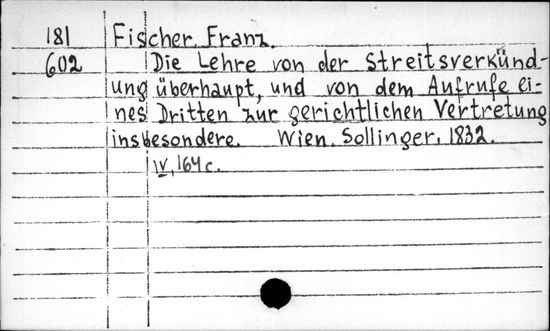 181 Fischer, Franz.
602 Die Lehre von der Streitsverkünd-
ung überhaupt, und von dem Aufrufe ei-
nes Dritten zur gerichtlichen Vertretung
insbesondere. Wien. Sollinger. 1832.
IV, 164 c.